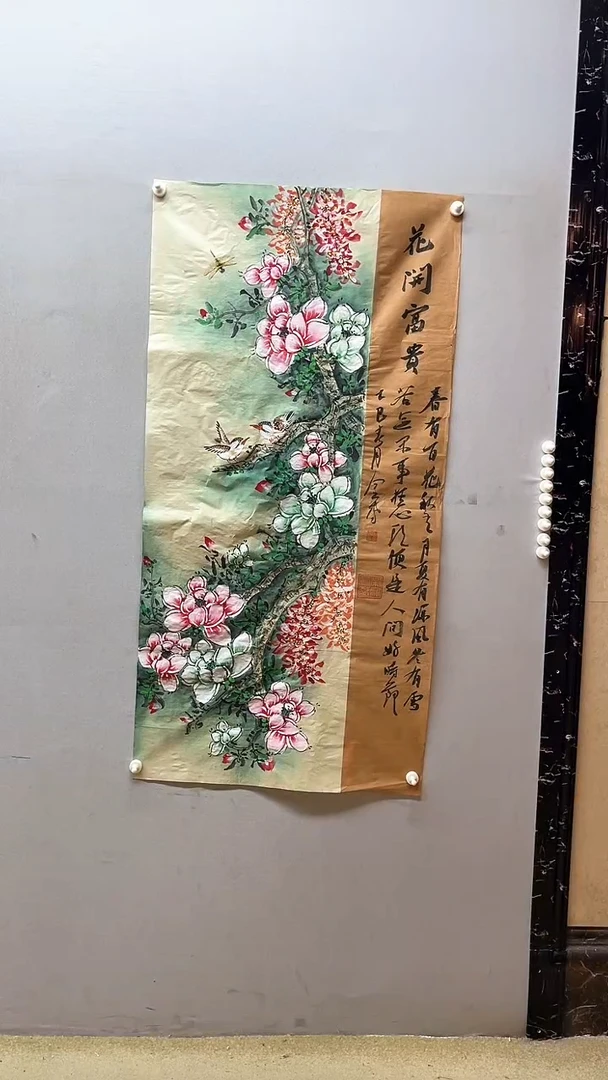 花開富貴
春有百花秋有月夏有凉風冬有雪
若無閒事挂心頭便是人間好時節
乙巳春月